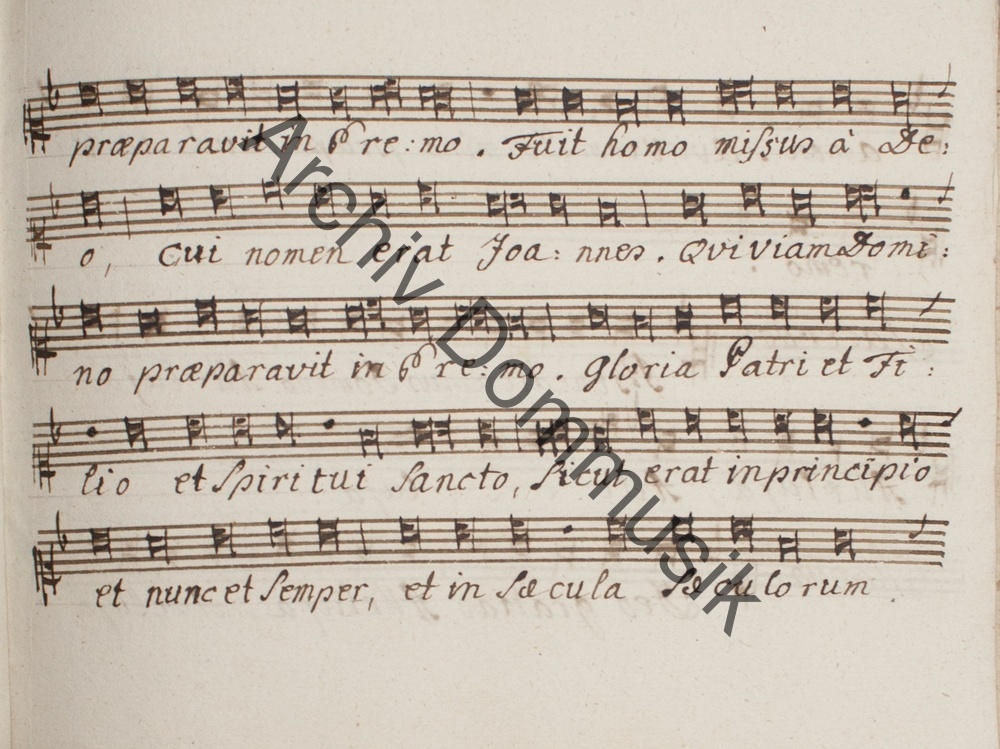 præparavit in Eremo. Fuit homo missus à De:
o, cui nomen erat Joa: nnes. Qui viam Domi:
no præparavit in Ere: mo. Gloria Patri et Fi:
lio et Spiritui Sancto, Sicut erat in principio
et nunc et Semper, et in Sæcula Sæculorum
Archiv Dommusik